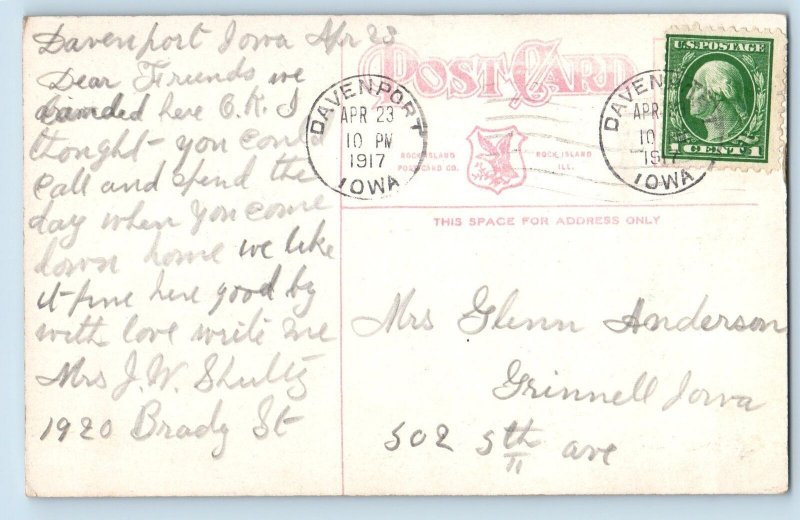 Davenport Iowa Apr 23
Dear Friends we
landed here O.K. I
thought - you could
call and spend the
day when you come
down home we like
it fine here good by
with love write me
Mrs J.W. Shultz
1920 Brady St
POST CARD
ROCK ISLAND
POST CARD CO.
ROCK ISLAND
ILL.
THIS SPACE FOR ADDRESS ONLY
DAVENPORT
APR 23
10 PM
1917
IOWA
DAVEN
APR
10
1917
IOWA
U.S. POSTAGE
1 CENT 1
Mrs Glenn Anderson
Grinnell Iowa
502 5th ave